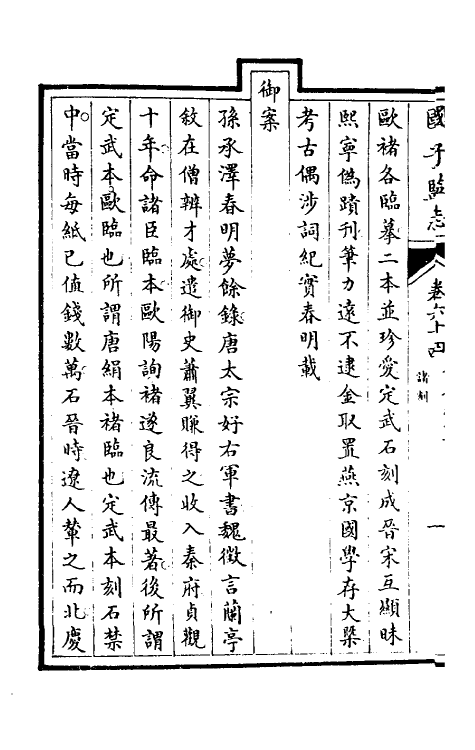 國子監志
卷六十四
諸刻
一
歐褚各臨摹二本並珍愛定武石刻成晉宋互顯昧
熙寧偽蹟刊筆力遠不逮金取置燕京國學存大槩
考古偶涉詞紀實春明載
御案
孫承澤春明夢餘錄唐太宗好右軍書魏徵言蘭亭
敘在僧辨才處遣御史蕭翼賺得之收入秦府貞觀
十年命諸臣臨本歐陽詢褚遂良流傳最著後所謂
定武本歐臨也所謂唐絹本褚臨也定武本刻石禁
中當時每紙已值錢數萬石晉時遼人輦之而北慶